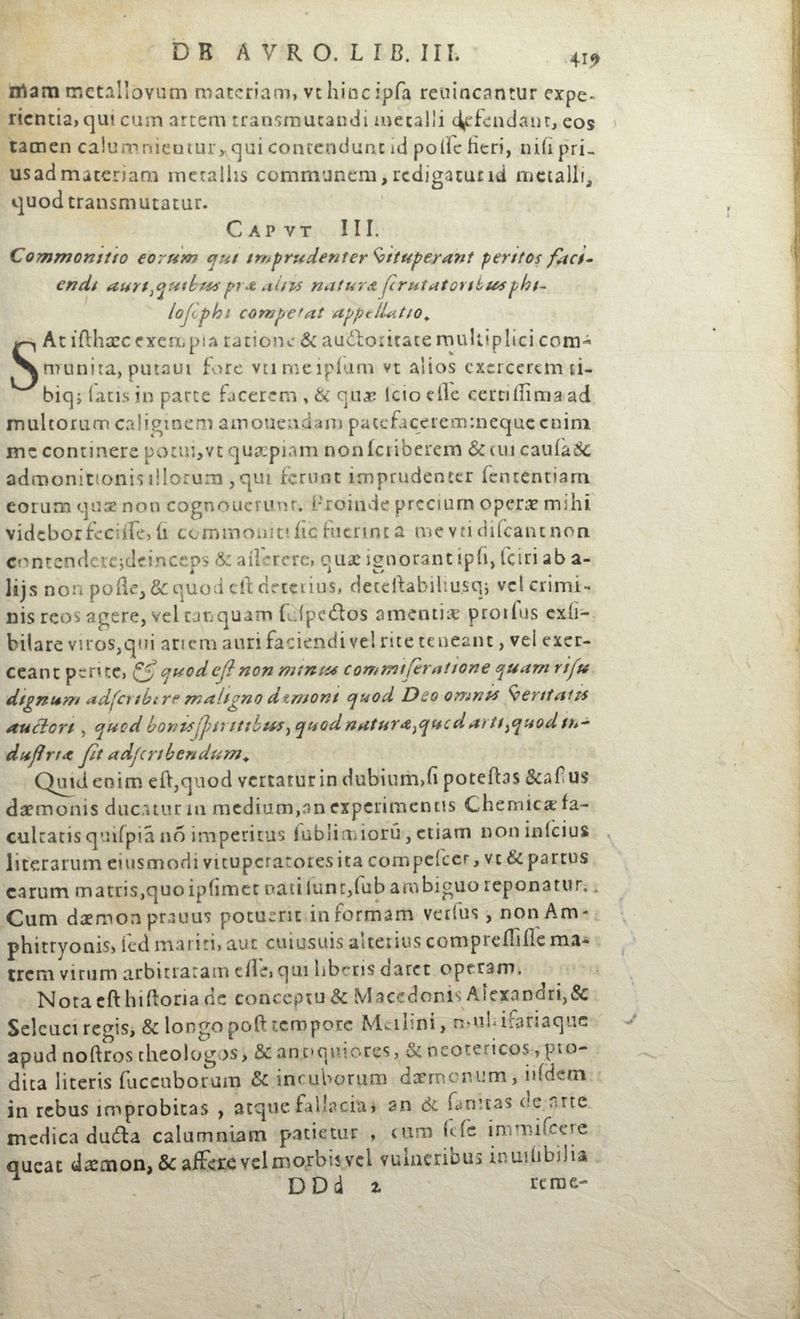 DE AVRO. LIB. III. 419
mam metallovum materiam, vt hinc ipsa reuincantur expe-
rientia, qui cum artem transmutandi metalli defendant, eos
tamen calumnientur, qui contendunt id posse fieri, nisi pri-
us ad materiam metallis communem, redigatur id metalli,
quod transmutatur.
CAPVT III.
Commonitio eorum qui imprudenter vituperant peritos faci-
endi auri, quibus præ aliis naturæ scrutatoribus phi-
losophi competat appellatio.
SAt isthæc exempla ratione & auctoritate multiplici com-
munita, putaui fore vti meipsum vt alios exercerem ti-
biq; satis in parte facerem, & quæ scio esse certissima ad
multorum caliginem amouendam patefacerem: neque enim
me continere potui, vt quæpiam non scriberem & tui causa &
admonitionis illorum, qui ferunt imprudenter sententiam
eorum quæ non cognouerunt. Proinde precium operæ mihi
videbor fecisse, si commoniti sic fuerint a me vti discant non
contendere; deinceps & asserere, quæ ignorant ipsi, sciri ab a-
lijs non posse, & quod est deterius, detestabiliusq; vel crimi-
nis reos agere, vel tanquam suspectos amentiæ prorsus exsi-
bilare viros, qui artem auri faciendi vel rite teneant, vel exer-
ceant perite, & quod est non minus commiseratione quam risu
dignum adscribere maligno dæmoni quod Deo omnis veritatis
auctori, quod bonis spiritibus, quod naturæ, quod arti, quod in-
dustriæ sit adscribendum.
Quid enim est, quod vertatur in dubium, si potestas & astus
dæmonis ducatur in medium, an experimentis Chemicæ fa-
cultatis quispiā nō imperitus sublimiorū, etiam non inscius
literarum eiusmodi vituperatores ita compescer, vt & partus
earum matris, quo ipsimet nati sunt, sub ambiguo reponatur.
Cum dæmon prauus potuerit in formam versus, non Am-
phitryonis, sed mariti, aut cuiusuis alterius compressisse ma-
trem virum arbitratam esse, qui liberis daret operam.
Nota est historia de conceptu & Macedonis Alexandri, &
Seleuci regis, & longo post tempore Merlini, multifariaque
apud nostros theologos, & antiquiores, & neotericos, pro-
dita literis succuborum & incuborum dæmonum, iisdem
in rebus improbitas, atque fallacia, an & sanitas de arte
medica ducta calumniam patietur, cum sese immiscere
queat dæmon, & afferre vel morbis vel vulneribus inuisibilia
DDd 2 reme-